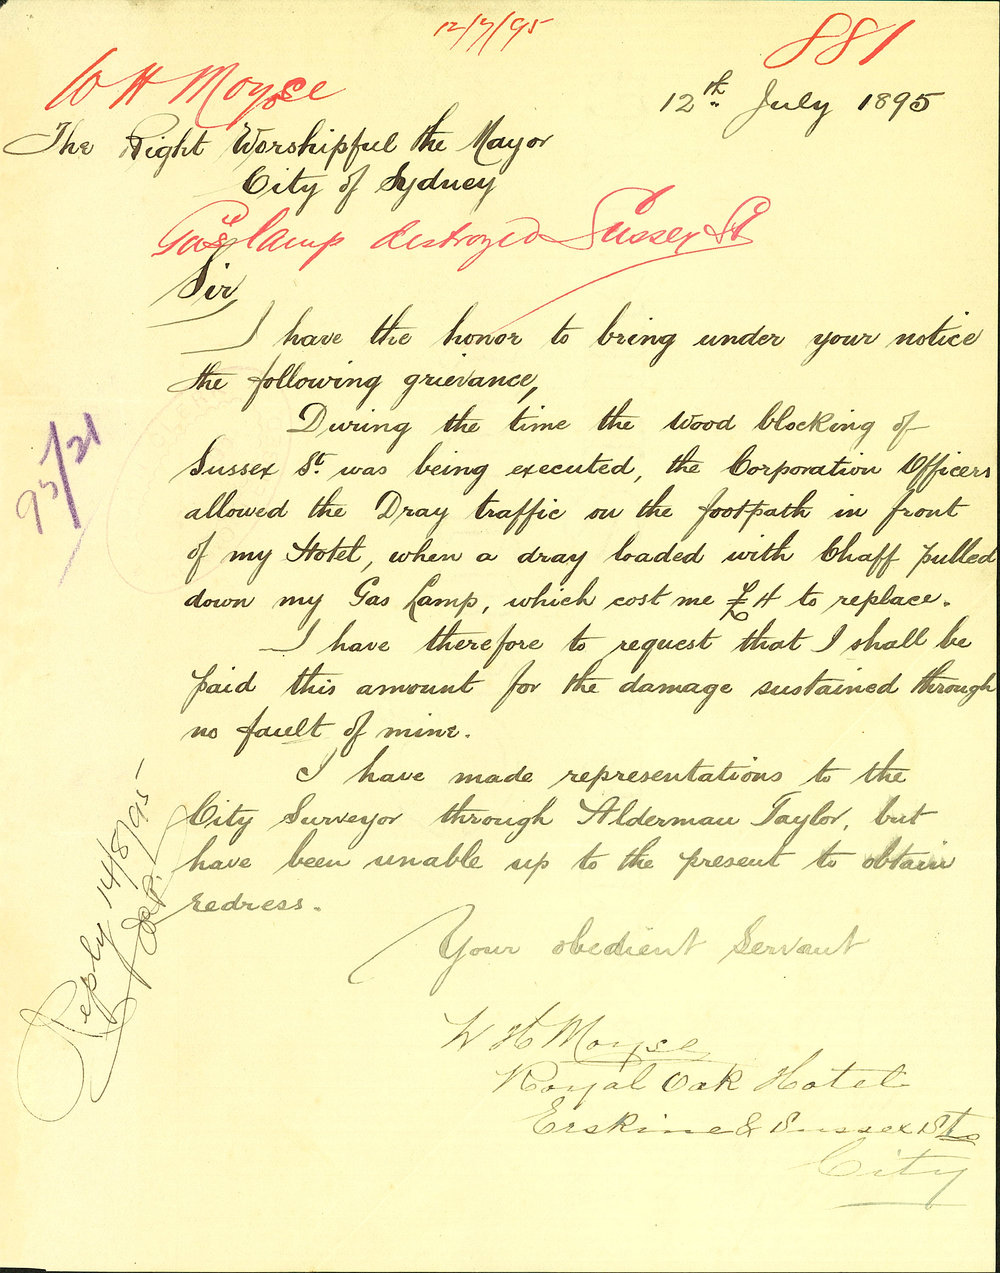 12/7/95
881
W H Moyse
12th July 1895
The Right Worshipful the Mayor
City of Sydney
Gas Lamp destroyed Sussex St
Sir,
I have the honor to bring under your notice
the following grievance,
During the time the wood blocking of
Sussex St. was being executed, the Corporation Officers
allowed the Dray traffic on the footpath in front
of my Hotel, when a dray loaded with Chaff pulled
down my Gas Lamp, which cost me £4 to replace.
I have therefore to request that I shall be
paid this amount for the damage sustained through
no fault of mine.
I have made representations to the
City Surveyor through Alderman Taylor, but
have been unable up to the present to obtain
redress.
Your obedient Servant
W H Moyse
Royal Oak Hotel
Erskine & Sussex Sts
City
Reply 14/8/95